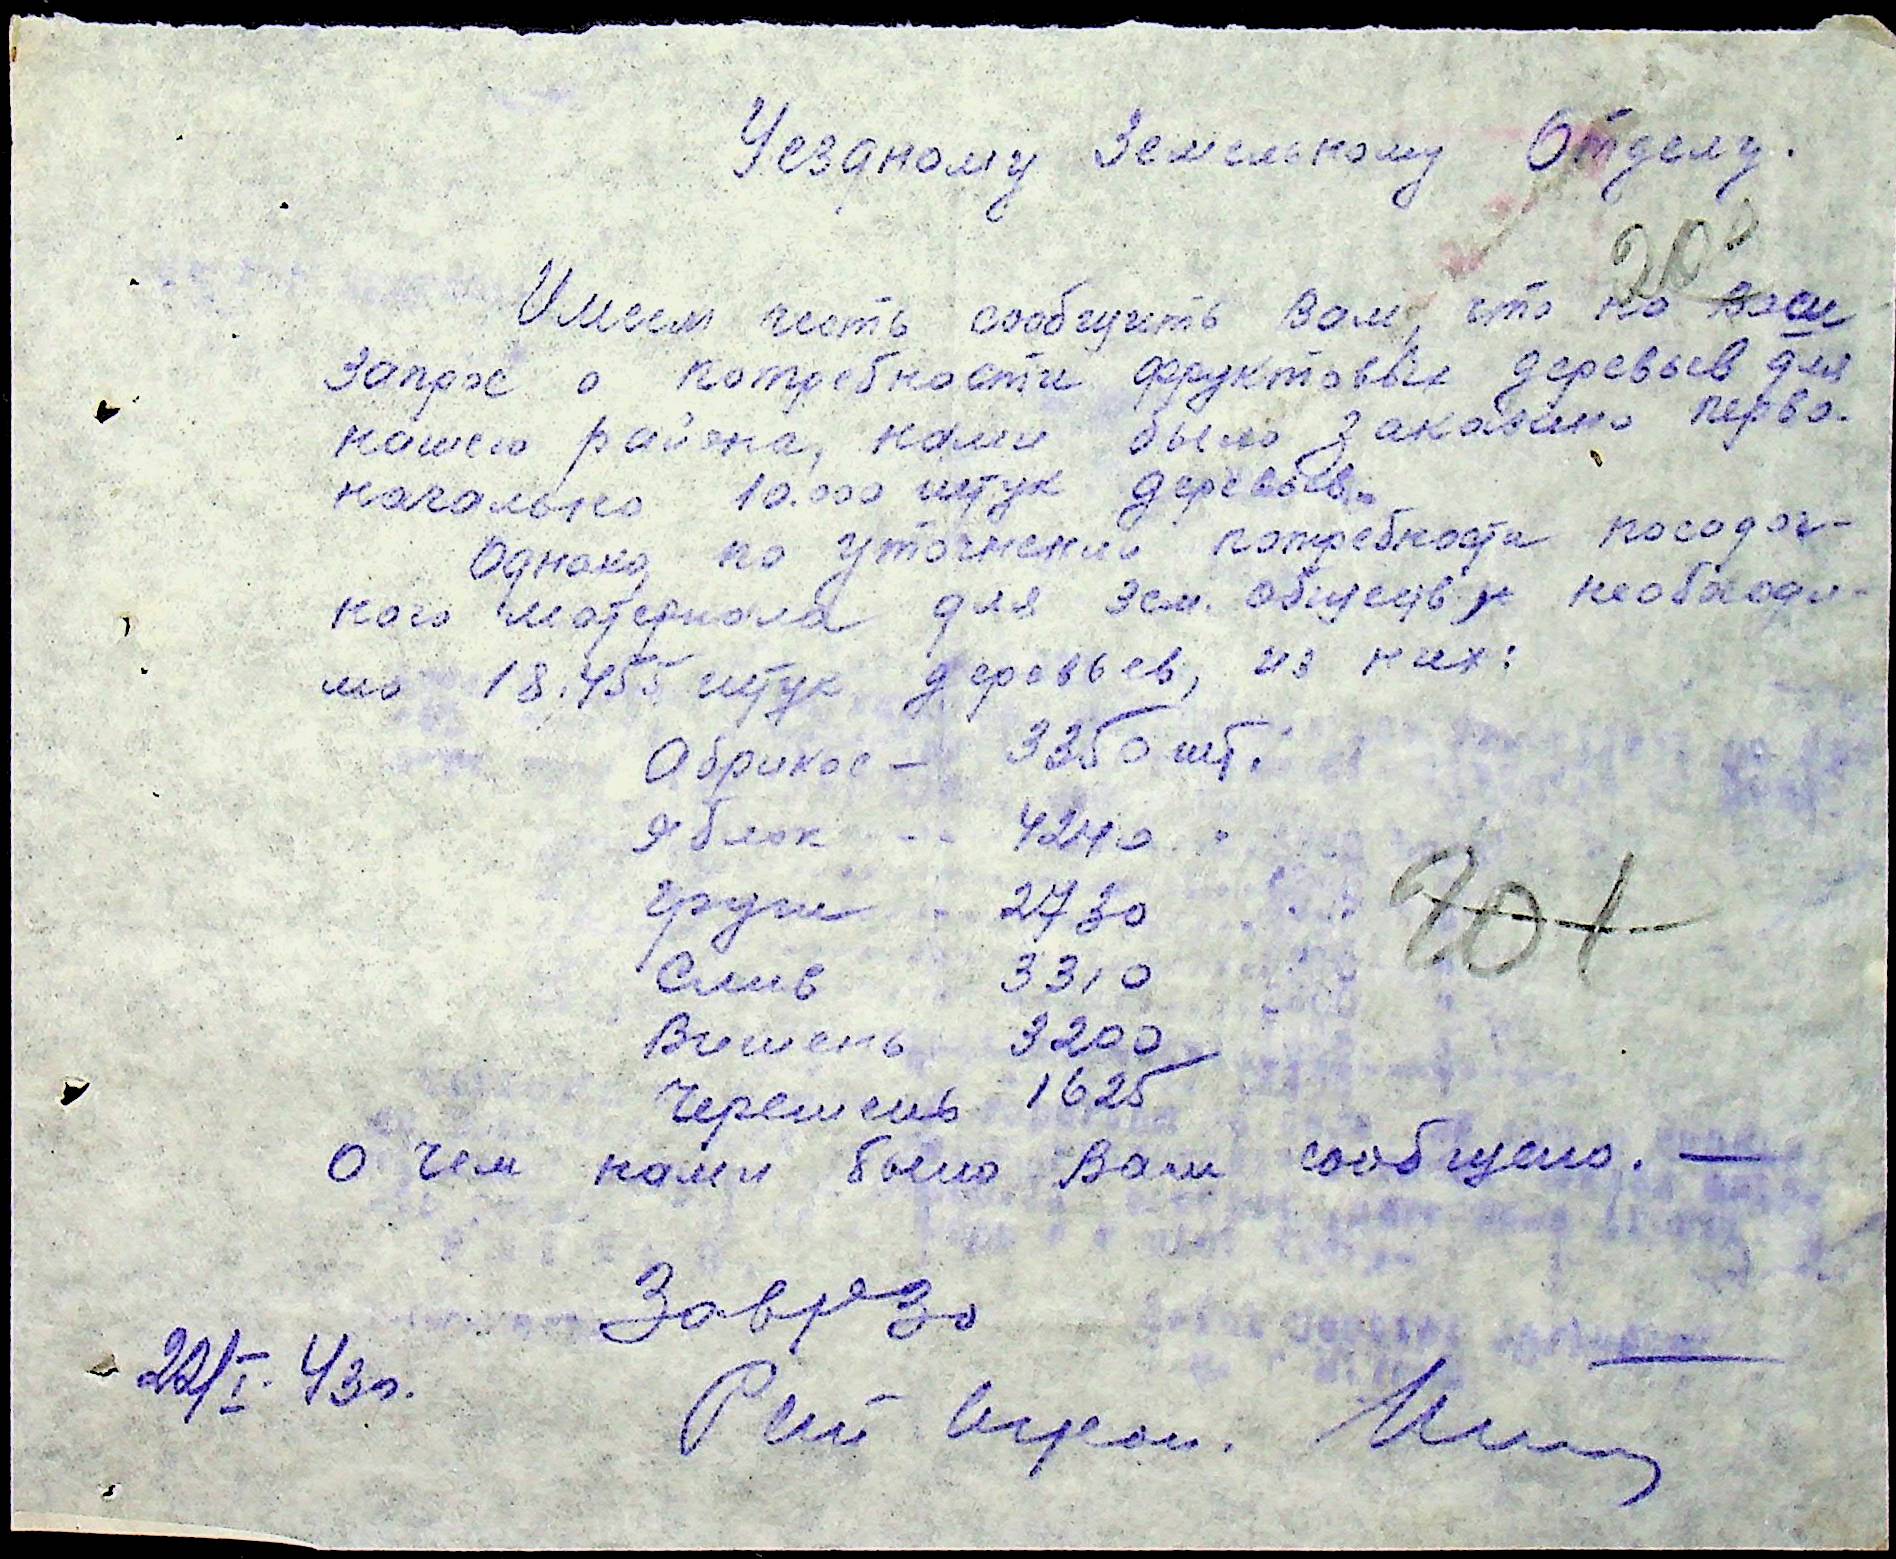 Уездному Земельному Отделу.
20
Имеем честь сообщить Вам, что на ваш
запрос о потребности фруктовых деревьев для
нашего района, нами было заказано перво-
начально 10.000 штук деревьев.
Однако, по уточнении потребности посадоч-
ного материала для зем. обществ, необходи-
мо 18.455 штук деревьев, из них:
Абрикос — 3350 шт.
Яблок -- 4240 "
Груш - 2730
Слив 3310
Вишень 3200
Черешень 1625
201
О чем нами было Вам сообщено. —
Заврайзо
22/I. 43г.
Рай Агроном.